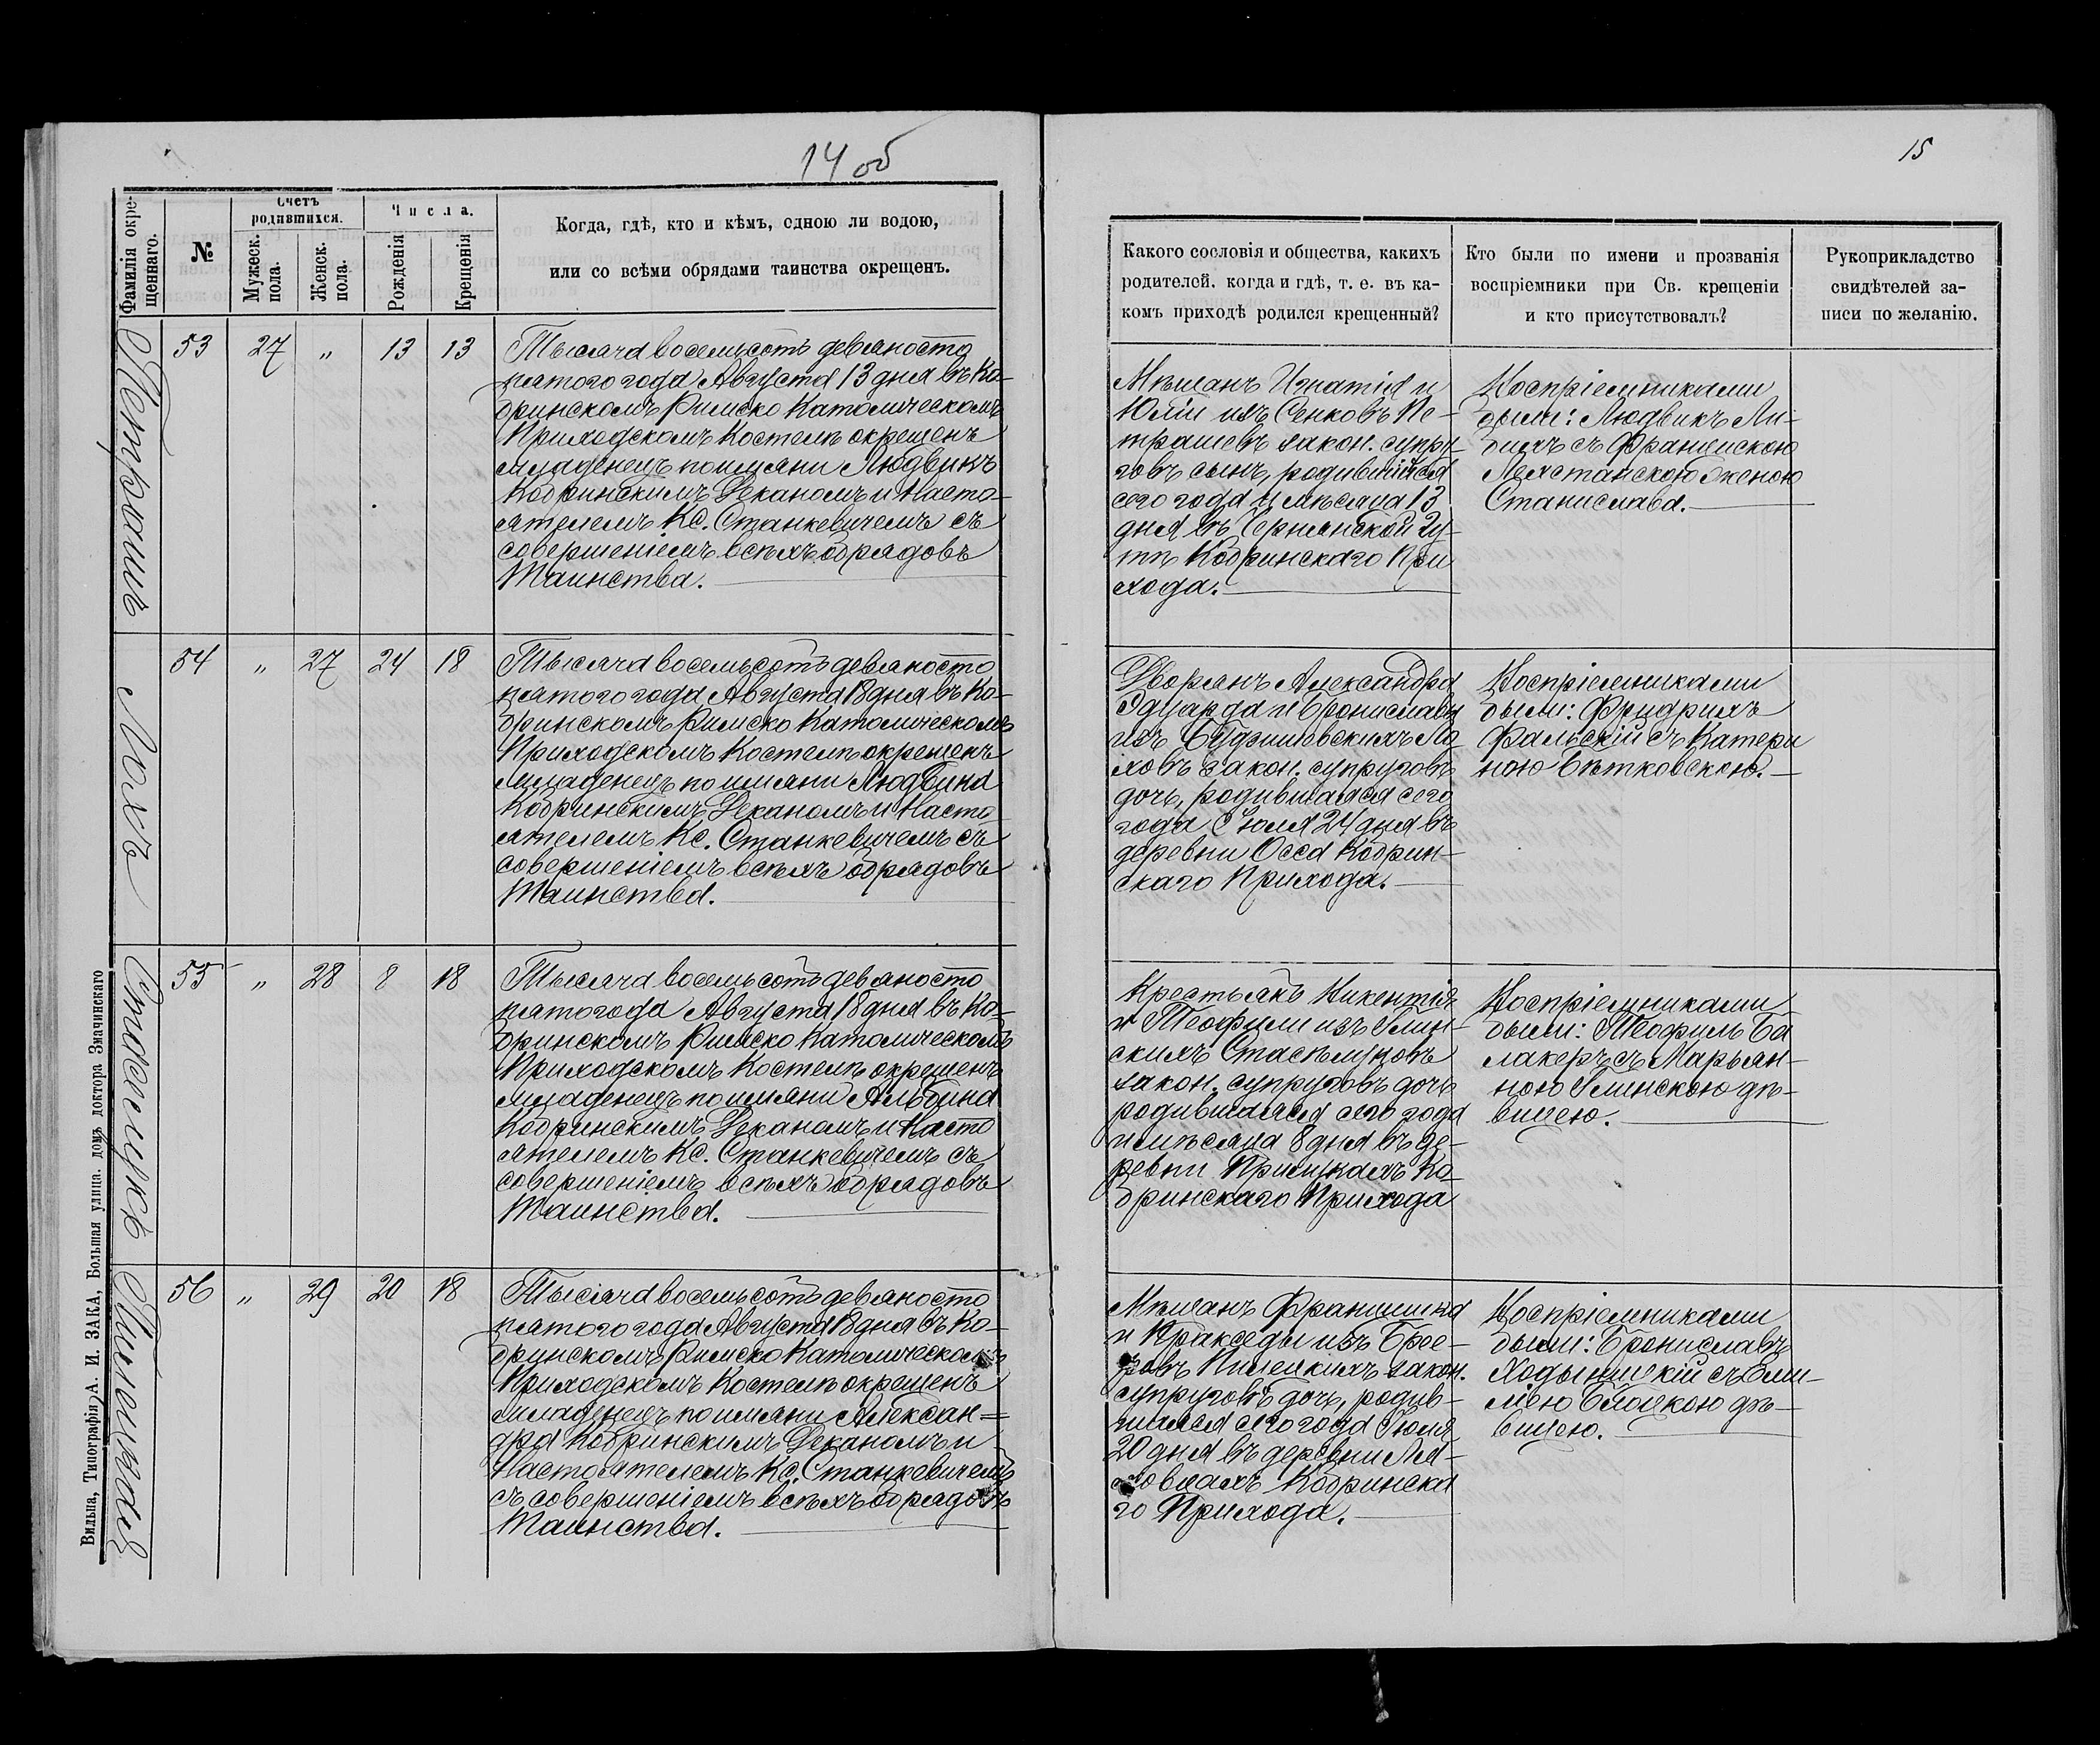 14 об
Фамилія окрещеннаго.
№
Счетъ родившихся.
Мужеск. пола.
Женск. пола.
Числа.
Рожденія
Крещенія
Когда, гдѣ, кто и кѣмъ, одною ли водою,
или со всѣми обрядами таинства окрещенъ.
Петрашъ
53 27 „ 13 13
Тысяча восемьсотъ девяносто
пятого года Августа 13 дня въ Ко-
бринскомъ Римско Католическомъ
Приходскомъ Костелѣ окрещенъ
младенецъ по имяни Людвикъ
Кобринскимъ Деканомъ и Насто-
ятелемъ Кс. Станкевичемъ съ
совершеніемъ всѣхъ обрядовъ
Таинства.
Лохъ
54 „ 27 24 18
Тысяча восемьсотъ девяносто
пятого года Августа 18 дня въ Ко-
бринскомъ Римско Католическомъ
Приходскомъ Костелѣ окрещенъ
младенецъ по имяни Людвина
Кобринскимъ Деканомъ и Насто
ятелемъ Кс. Станкевичемъ съ
совершеніемъ всѣхъ обрядовъ
Таинства.
55 „ 28 8 18
Тысяча восемьсотъ девяносто
пятогода Августа 18 дня въ Ко-
бринскомъ Римско Католическомъ
Приходскомъ Костелѣ окрещенъ
младенецъ по имяни Альбина
Кобринскимъ Деканомъ и Насто
ятелемъ Кс. Станкевичемъ съ
совершеніемъ всѣхъ обрядовъ
Таинства.
56 „ 29 20 18
Тысяча восемьсотъ девяносто
пятого года Августа 18 дня въ Ко-
бринскомъ Римско Католическомъ
Приходскомъ Костелѣ окрещенъ
младенецъ по имяни Алексан=
дра Кобринскимъ Деканомъ и
Настоятелемъ Кс. Станкевичемъ
съ совершеніемъ всѣхъ обрядовъ
Таинства.
Вильна, Типографія А. И. ЗАКА, Большая улица. домъ доктора Змачинскаго
15
Какого сословія и общества, какихъ
родителей. когда и гдѣ, т. е. въ ка-
комъ приходѣ родился крещенный?
Кто были по имени и прозванія
воспріемники при Св. крещеніи
и кто присутствовалъ?
Рукоприкладство
свидѣтелей за-
писи по желанію.
Мѣщанъ Игнатія и
Юліи изъ Сенковъ Пе-
трашевъ закон. супру-
говъ сынъ, родившійся
сего года и мѣсяца 13
дня въ Чернянской Гу-
тѣ Кобринскаго При
хода.
Воспріемниками
были:
съ Францискою
женою
Станислава.
Дворянъ Александра
Эдуарда и Брониславы
изъ Ло
ховъ закон. супруговъ
дочь, родившаяся сего
года Іюля 24 дня въ
деревни Осса Кобрин-
скаго Прихода.
Воспріемниками
были: Фридрихъ
Фальскій съ Катери
ною Вѣтковскою.
Крестьянъ Викентія
и Теофили изъ Глин-
скихъ
закон. супруговъ дочь
родившаяся сего года
и мѣсяца 8 дня въ де-
ревни Ко-
бринскаго Прихода
Воспріемниками
были: Теофиль Ба
лакеръ съ Марьян-
ною Глинскою дѣ-
вицею.
Мѣщанъ Францишка
и Пракседы изъ
закон.
супруговъ дочь, родив-
шаяся сего года Іюля
20 дня въ деревни Ля-
ховцахъ Кобринска
го Прихода.
Воспріемниками
были: Брониславъ
съ Эми-
ліею дѣ-
вицею.